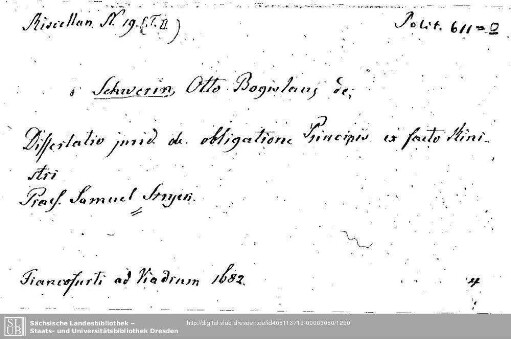 Miscellan. N. 19. (T. II.)
Polit. 611=o
Schwerin, Otto Bogislaus de,
Dissertatio jurid. de obligatione Principis ex facto Mini-
stri
Praes. Samuel Stryk.
Francofurti ad Viadrum 1682.
4
SLUB
Sächsische Landesbibliothek –
Staats- und Universitätsbibliothek Dresden